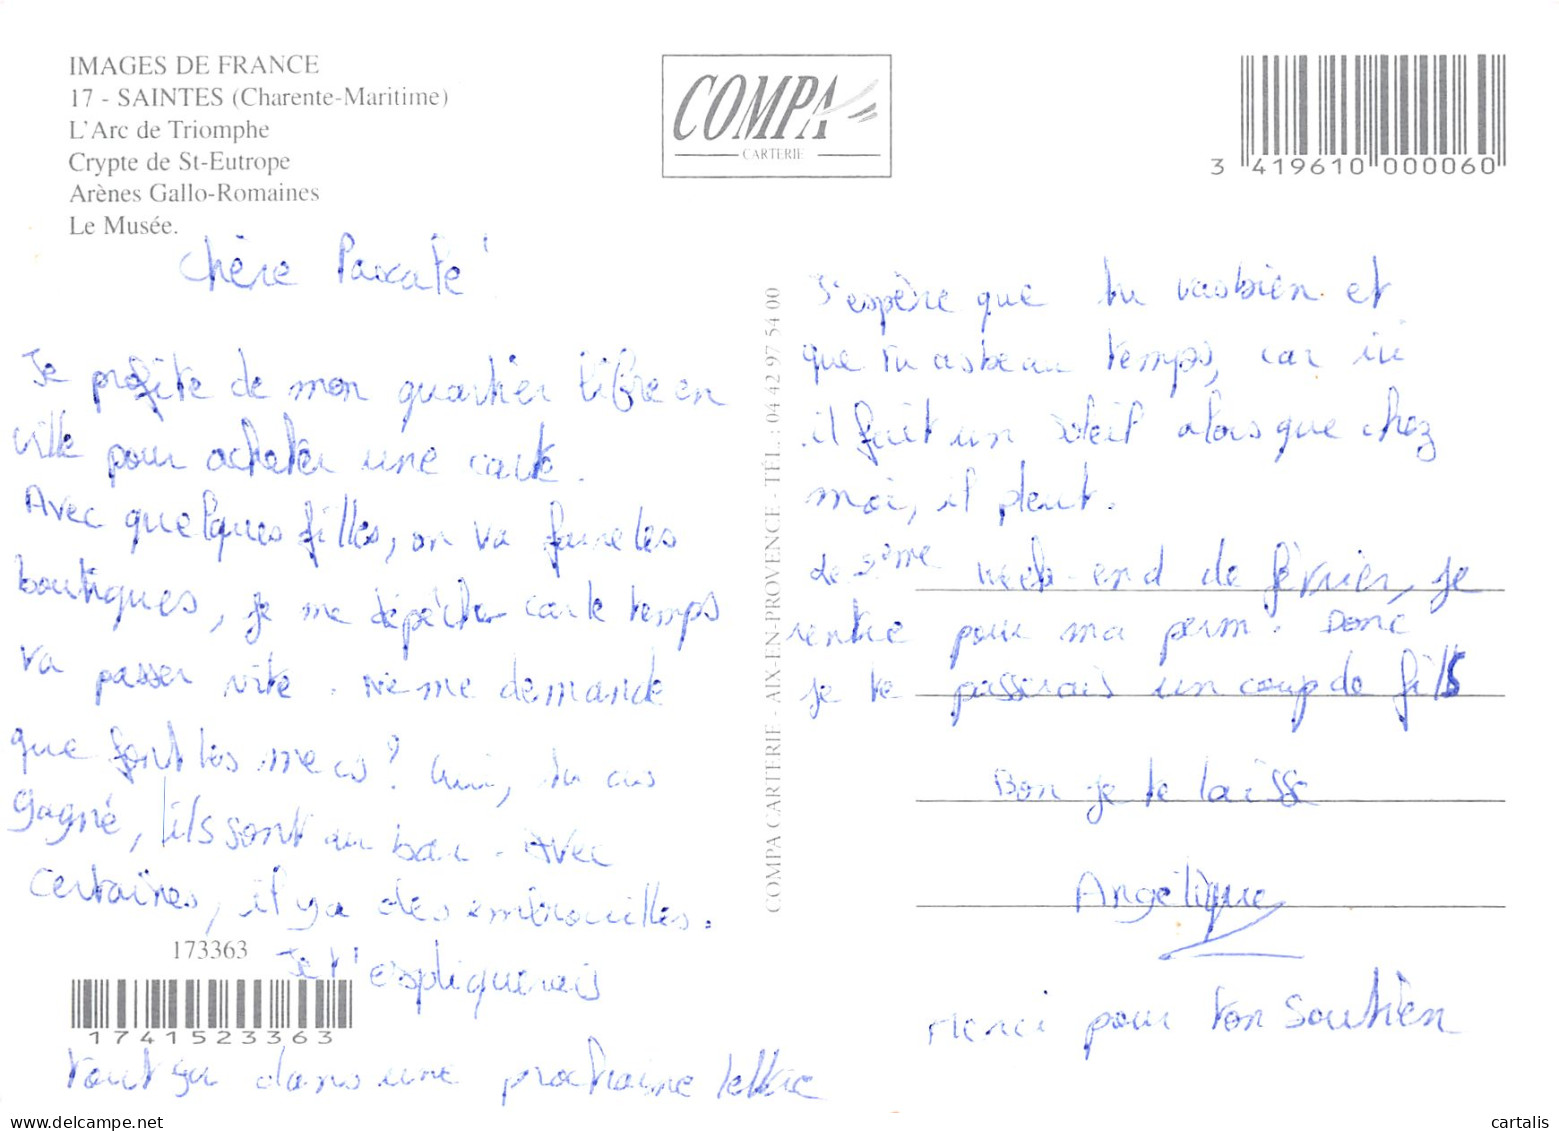 IMAGES DE FRANCE
17 - SAINTES (Charente-Maritime)
L'Arc de Triomphe
Crypte de St-Eutrope
Arènes Gallo-Romaines
Le Musée.
COMPA
CARTERIE
3 419610 000060
Chère Pascale
Je profite de mon quartier libre en
ville pour acheter une carte.
Avec quelques filles, on va faire les
boutiques, je me dépêcher car le temps
va passer vite. Ne me demande
que font les mecs? Oui, tu as
gagné, ils sont au bar. Avec
certaines, il y a des embrouilles.
Je t'espliquerais
tout ça dans une prochaine lettre
173363
1741523363
COMPA CARTERIE - AIX-EN-PROVENCE - TÉL. : 04 42 97 54 00
J'espère que tu vas bien et
que tu as beau temps, car ici
il fait un soleil alors que chez
moi, il pleut.
Le 2ème week-end de février, je
rentre pour ma perm. Donc
je te passerais un coup de fils
Bon je te laisse
Angélique
Merci pour ton soutien
www.cartalis.com